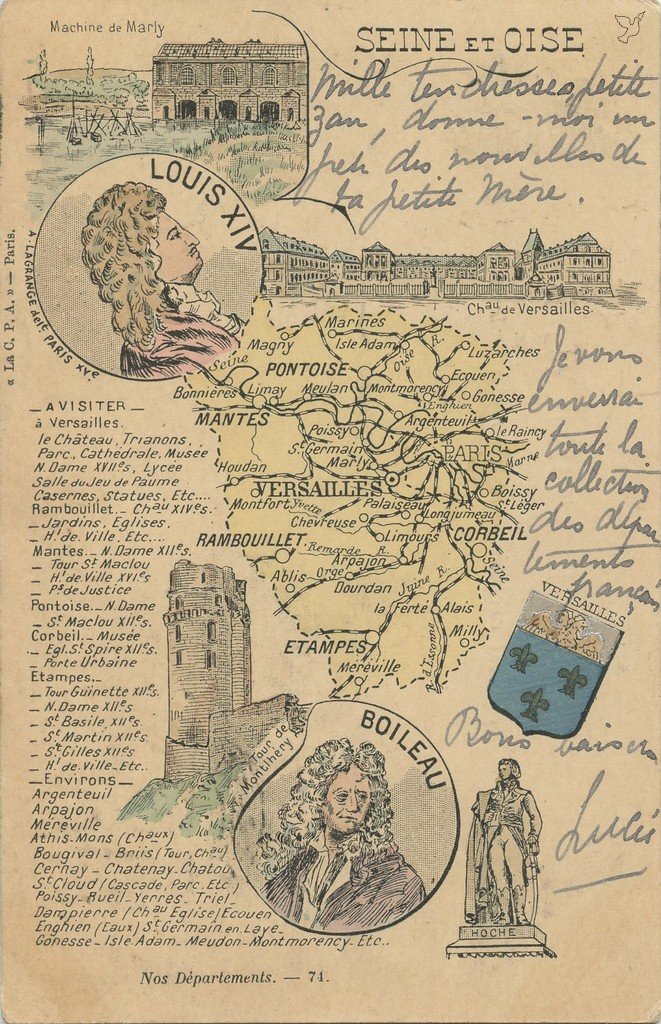 Machine de Marly
SEINE ET OISE
Mille tendresses, petite
Zan, donne-moi un
peu des nouvelles de
ta petite Mère.
LOUIS XIV
A. LAGRANGE delt PARIS XVe
« La C. P. A. » — Paris.
Chau de Versailles.
Je vous
enverrai
toute la
collection
des dépar
tements
français
Magny
Marines
Isle Adam
Oise R.
Luzarches
Seine
PONTOISE
Ecouen
Bonnières
Limay
Meulan
Montmorency
Gonesse
Enghien
MANTES
Argenteuil
Poissy
le Raincy
St Germain
PARIS
Marly
Marne
Houdan
VERSAILLES
Boissy
St Léger
Montfort
Yvette
Palaiseau
Chevreuse
Longjumeau
CORBEIL
RAMBOUILLET
Limours
Remarde R.
Arpajon
Seine
Ablis
Orge
Dourdan
Juine R.
la Ferté
Alais
ETAMPES
Milly
Meréville
R. d'Essonne
— A VISITER —
à Versailles.
le Château, Trianons,
Parc, Cathedrale, Musée
N. Dame XVIIes, Lycee
Salle du Jeu de Paume
Casernes, Statues, Etc....
Rambouillet. _ Chau XIVes.
_ Jardins, Eglises,
_ Hl de Ville, Etc...
Mantes. _ N. Dame XIIes.
_ Tour St Maclou
_ Hl de Ville XVIes
_ Ps de Justice
Pontoise. _ N. Dame
_ St Maclou XIIes.
Corbeil. _ Musée
_ Egl. St Spire XIIes.
_ Porte Urbaine
Etampes. _
_ Tour Guinette XIIes.
_ N. Dame XIIes
_ St Basile, XIIes.
_ St Martin XIIes.
_ St Gilles XIIes
_ Hl de Ville _ Etc..
— Environs —
Argenteuil
Arpajon
Meréville
Athis-Mons (Chaux)
Bougival _ Briis (Tour, Chau)
Cernay _ Chatenay _ Chatou
St Cloud (Cascade, Parc, Etc)
Poissy _ Rueil _ Yerres _ Triel _
Dampierre (Chau Eglise) Ecouen
Enghien (Eaux) St Germain en Laye _
Gonesse _ Isle Adam _ Meudon _ Montmorency _ Etc..
Tour de
Montlhery
BOILEAU
VERSAILLES
Bons baisers
Lucie
HOCHE
Nos Départements. — 74.